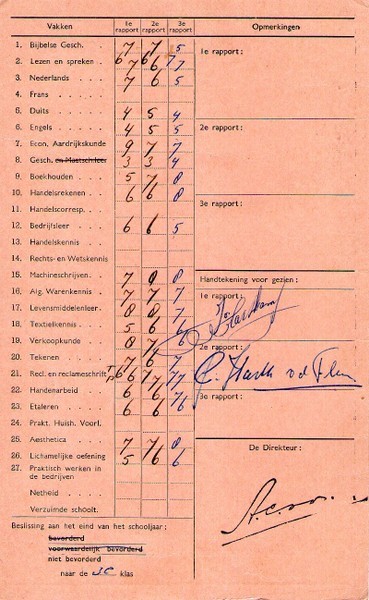 Vakken 1e rapport 2e rapport 3e rapport Opmerkingen
1. Bijbelse Gesch. . 7 7 5
1e rapport :
2. Lezen en spreken . 6 7 6 6 7 7
3. Nederlands . . . 7 6 5
4. Frans . . . . .
5. Duits . . . . . 4 5 4
6. Engels . . . . 4 5 5
2e rapport :
7. Econ. Aardrijkskunde 9 7 7
8. Gesch. en Maatsch.leer 3 3 4
9. Boekhouden . . . 5 7 8
10. Handelsrekenen . . 6 6 8
11. Handelscorresp. . .
3e rapport :
12. Bedrijfsleer . . . 6 6 5
13. Handelskennis . .
14. Rechts- en Wetskennis
15. Machineschrijven . . 7 8 8
Handtekening voor gezien :
16. Alg. Warenkennis . . 7 7 7
1e rapport :
17. Levensmiddelenleer . 8 8 7
18. Textielkennis . . . 5 6 6
19. Verkoopkunde . . 8 7 6
2e rapport :
20. Tekenen . . . . 7 6 7
21. Recl. en reclameschrift
22. Handenarbeid . . 6 6 7
3e rapport :
23. Etaleren . . . . 6 6 6
24. Prakt. Huish. Voorl.
25. Aesthetica . . . 7 7 8
De Direkteur :
26. Lichamelijke oefening 5 6 6
27. Praktisch werken in
de bedrijven
Netheid . . . .
Verzuimde schoolt. .
Beslissing aan het eind van het schooljaar :
bevorderd
voorwaardelijk bevorderd
niet bevorderd
naar de klas